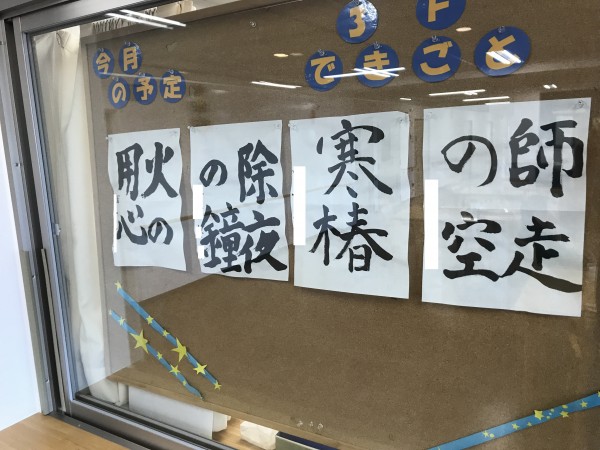 今月
の予定
3F
できごと
師走
の空
寒椿
除夜
の鐘
火の
用心